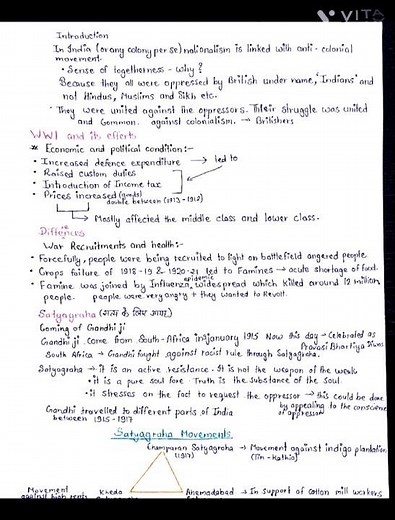 VITA
Introduction
In India (or any colony per se) nationalism is linked with anti-colonial
movement.
• Sense of togetherness - Why?
Because they all were oppressed by British under name, 'Indians' and
not Hindus, Muslims and Sikh etc.
• They were united against the oppressors. Their struggle was united
and Common. against colonialism. → Britishers
WWI and its effects
* Economic and political condition:-
• Increased defence expenditure → led to
• Raised custom duties
• Introduction of Income tax
• Prices increased (goods)
double between (1913-1918)
→ Mostly affected the middle class and lower class.
War Recruitments and health:-
• Forcefully, people were being recruited to fight on battlefield angered people.
• Crops failure of 1918-19 & 1920-21 led to Famines → acute shortage of food.
• Famine was joined by Influenza epidemic, widespread which killed around 12 million
people. people were very angry + they wanted to Revolt.
Satyagraha (सत्य के लिए आग्रह)
Coming of Gandhi ji
Gandhi ji come from South-Africa in january 1915 Now this day → Celebrated as
Pravasi Bhartiya Diwas
South Africa → Gandhi fought against racist rule through Satyagraha.
Satyagraha → it is an active resistance. It is not the weapon of the weak
• it is a pure soul force. Truth is the Substance of the Soul.
• it stresses on the fact to request the oppressor → this could be done
by appealing to the conscience
of oppressor
Gandhi travelled to different parts of India
between 1915-1917
Satyagraha Movements
Champaran Satyagraha → Movement against indigo plantation
(1917) (Tin-Kathia)
Movement Kheda Ahemadabad → In support of Cotton mill workers
against high rents